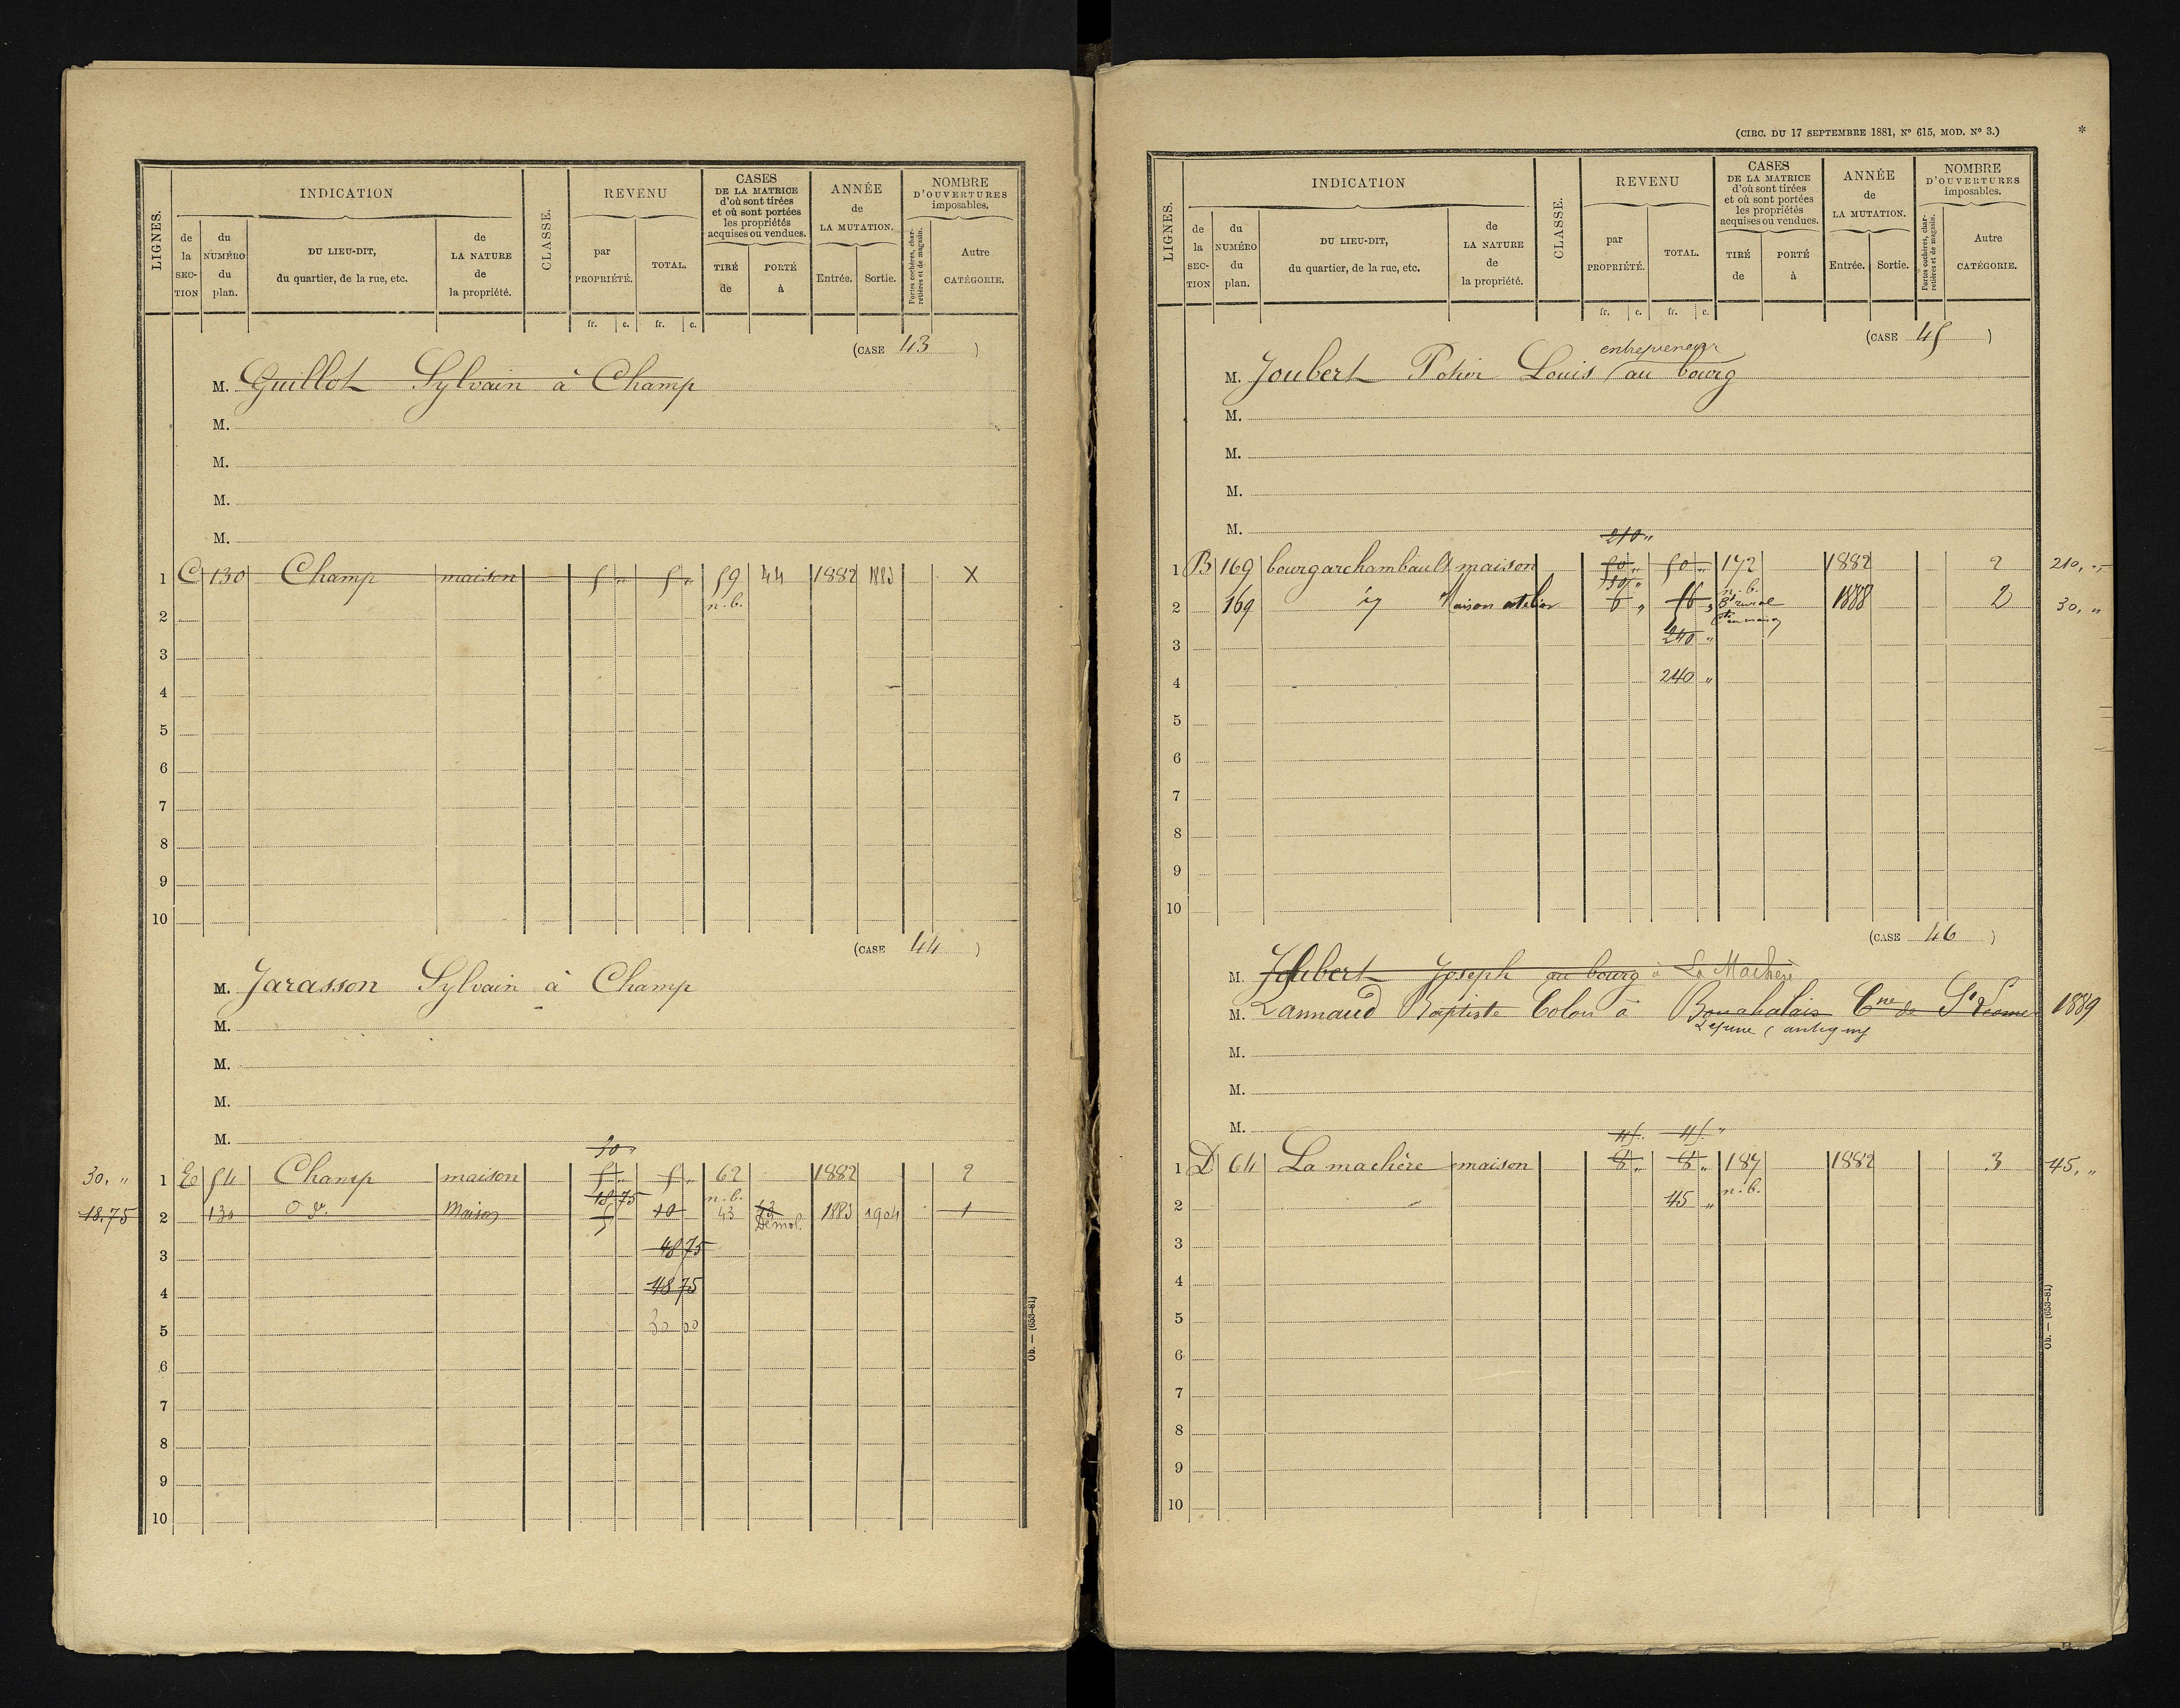 LIGNES.
INDICATION
de la SECTION
du NUMÉRO du plan.
DU LIEU-DIT, du quartier, de la rue, etc.
de LA NATURE de la propriété.
CLASSE.
REVENU
par PROPRIÉTÉ.
TOTAL.
CASES DE LA MATRICE d'où sont tirées et où sont portées les propriétés acquises ou vendues.
TIRÉ de
PORTÉ à
ANNÉE de LA MUTATION.
Entrée.
Sortie.
NOMBRE D'OUVERTURES imposables.
Portes cochères, charretières et de magasin.
Autre CATÉGORIE.
fr. c. fr. c.
(CASE 43 )
M. Guillot Sylvain à Champ
M.
M.
M.
M.
1 C 130 Champ maison 5 „ 5 „ 59 44 1882 1883 X
n.b.
2
3
4
5
6
7
8
9
10
(CASE 44 )
M. Jarasson Sylvain à Champ
M.
M.
M.
M.
30 „
30, „ 1 E 54 Champ maison 5 „ 5 „ 62 1882 2
18 75 n.b.
18.75 2 130 d° Maison 5 10 43 Démol. 1883 1904 1
3 48 75
4 48 75
5 30 00
6
7
8
9
10
Ob. — (653-81)
(CIRC. DU 17 SEPTEMBRE 1881, N° 615, MOD. N° 3.) *
LIGNES.
INDICATION
de la SECTION
du NUMÉRO du plan.
DU LIEU-DIT, du quartier, de la rue, etc.
de LA NATURE de la propriété.
CLASSE.
REVENU
par PROPRIÉTÉ.
TOTAL.
CASES DE LA MATRICE d'où sont tirées et où sont portées les propriétés acquises ou vendues.
TIRÉ de
PORTÉ à
ANNÉE de LA MUTATION.
Entrée.
Sortie.
NOMBRE D'OUVERTURES imposables.
Portes cochères, charretières et de magasin.
Autre CATÉGORIE.
fr. c. fr. c.
(CASE 45 )
entrepreneur
M. Joubert Potier Louis au bourg
M.
M.
M.
M.
210 „
1 B 169 bourgarchambault maison 50 „ 50 „ 172 1882 2 210, „
n.b.
2 169 id Maison atelier 6 „ 56 „ rural 1888 2 30, „
3 240 „
4 240 „
5
6
7
8
9
10
(CASE 46 )
M. Joubert Joseph au bourg à La Machère
M. Lannaud Baptiste Colon à Bouchalais Cne de St Léomer 1889
antigny
M.
M.
M.
45. 45. „
1 D 64 La machère maison 8 „ 8 „ 187 1882 3 45, „
2 45 „ n.b.
3
4
5
6
7
8
9
10
Ob. — (653-81)